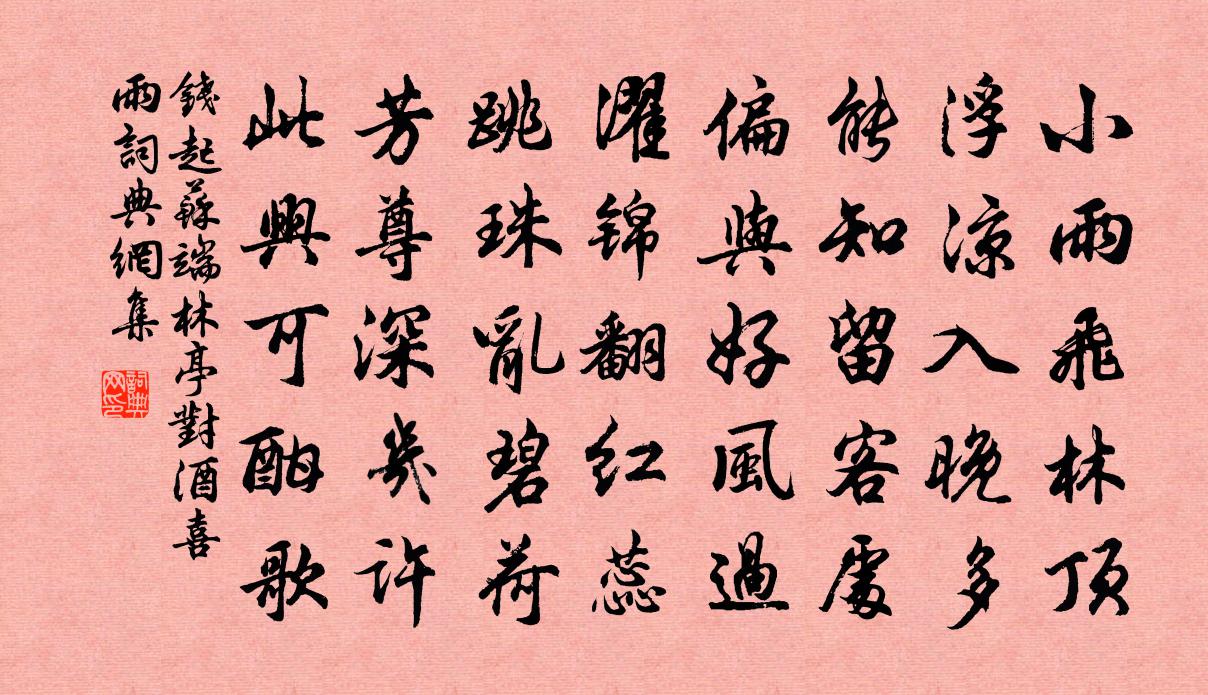 小雨飛林頂
浮涼入晚多
能知留客處
偏與好風過
濯錦翻紅蕊
跳珠亂碧荷
芳尊深幾許
此興可酣歌
錢起蘇端林亭對酒喜
雨詞典網集
詞典网印